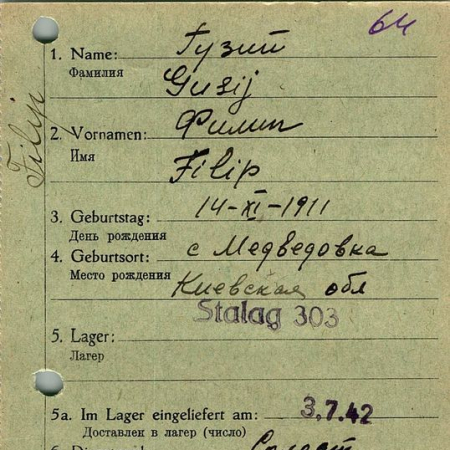 64
1. Name: Гузий
Фамилия
Gusij
Filip
2. Vornamen: Филип
Имя
Filip
3. Geburtstag: 14-XI-1911
День рождения
4. Geburtsort: с Медведовка
Место рождения
Киевская обл
Stalag 303
5. Lager:
Лагер
5a. Im Lager eingeliefert am: 3.7.42
Доставлен в лагер (число)